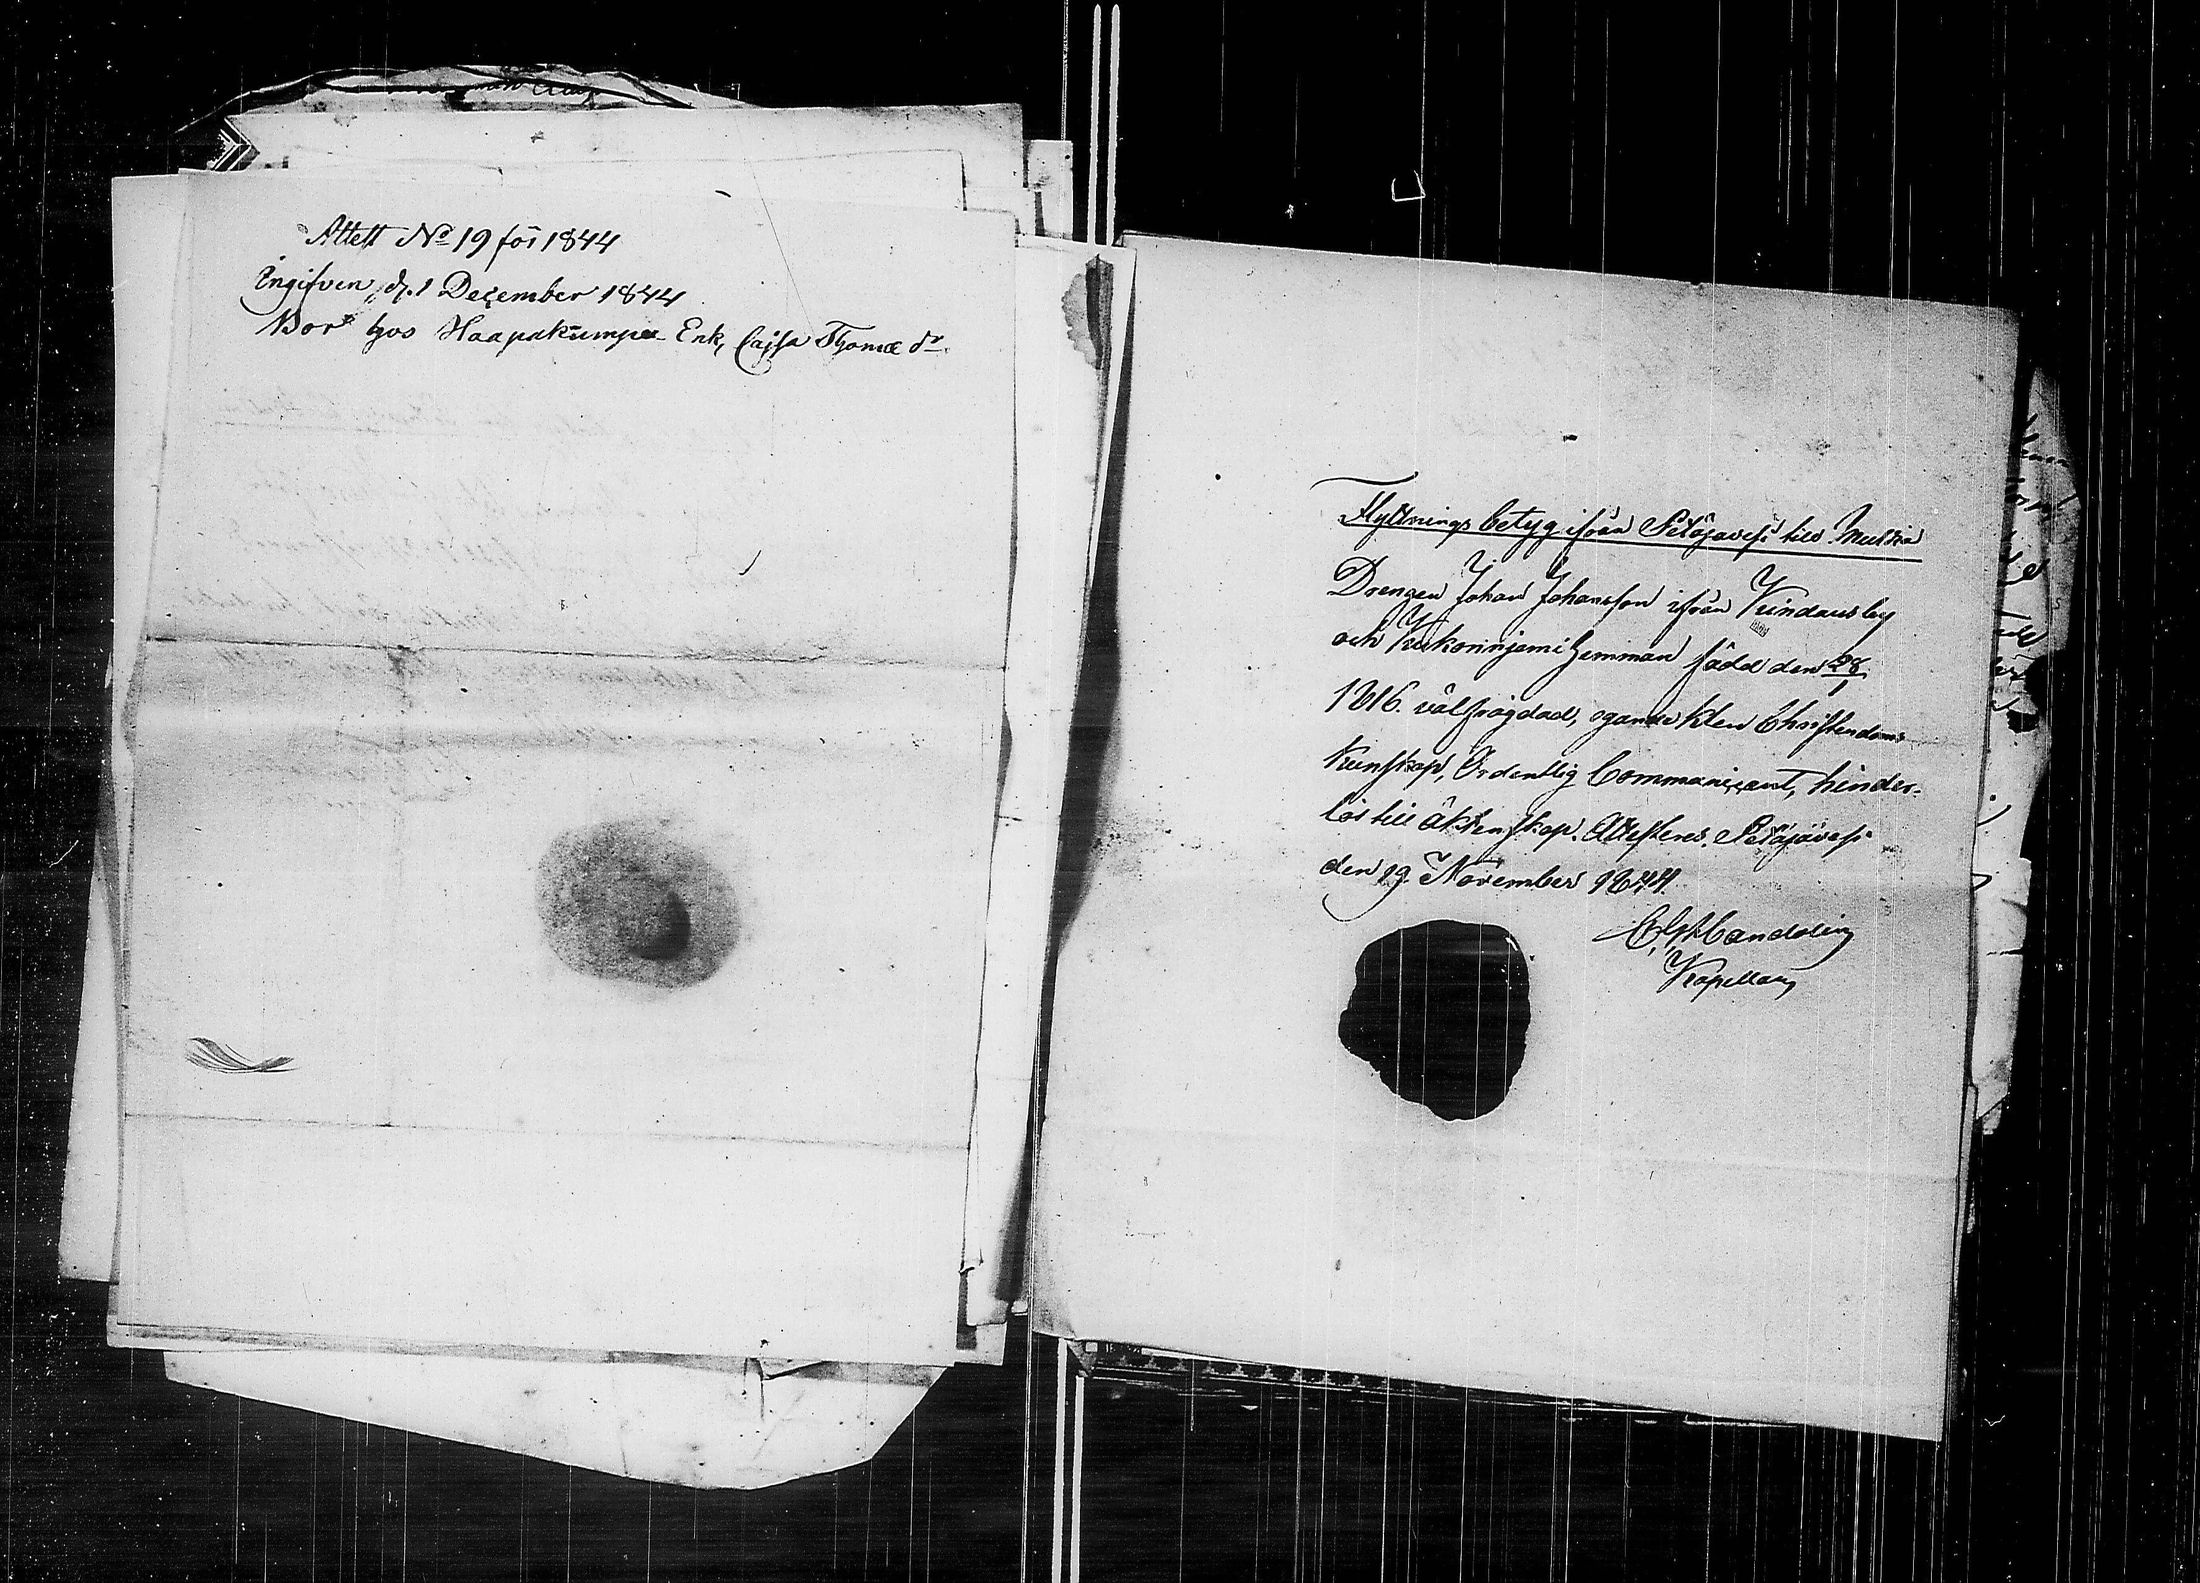 Attest No 19 för 1844
Ingifven d. 1 December 1844
Bor hos Haapakumpu Enk, Cajsa Thomæ dr
Flyttnings betyg ifrån Petäjävesi till Multia
Drengen Johan Johansson ifrån Kindausby
och Kukoninjemi hemman född den 28/1
1816. välfrägdad, egande klen Christendoms
kunskap, Ordentlig Communicant, hinder-
lös till äktenskap. Attesteras. Petäjävesi
den 19. November 1844.
Kapellan